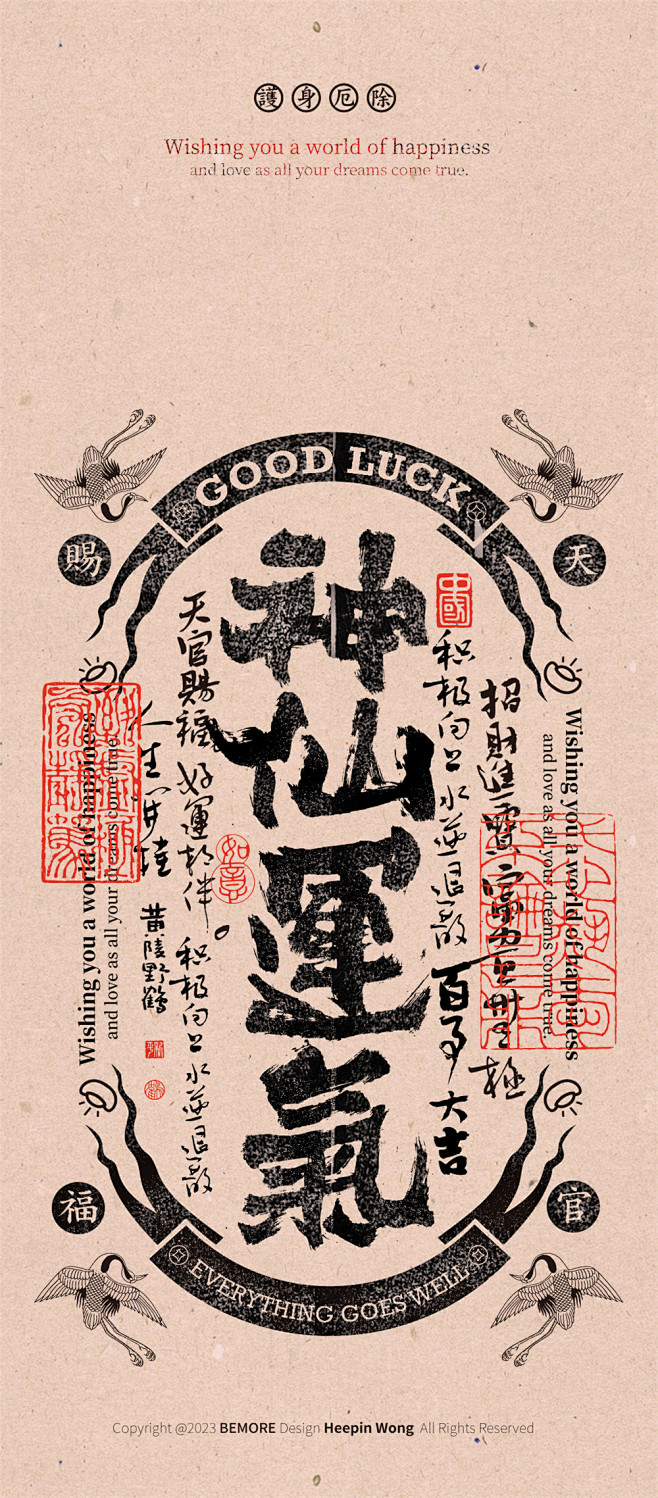 護身厄除
Wishing you a world of happiness
and love as all your dreams come true.
GOOD LUCK
天
官
賜
福
神仙運氣
中國
招財進寶
积极向上
百事大吉
天官賜福 好運相伴
积极向上
如意
人生开挂
黄陵野鹤
Wishing you a world of happiness
and love as all your dreams come true.
Wishing you a world of happiness
and love as all your dreams come true.
EVERYTHING GOES WELL
Copyright @2023 BEMORE Design Heepin Wong All Rights Reserved